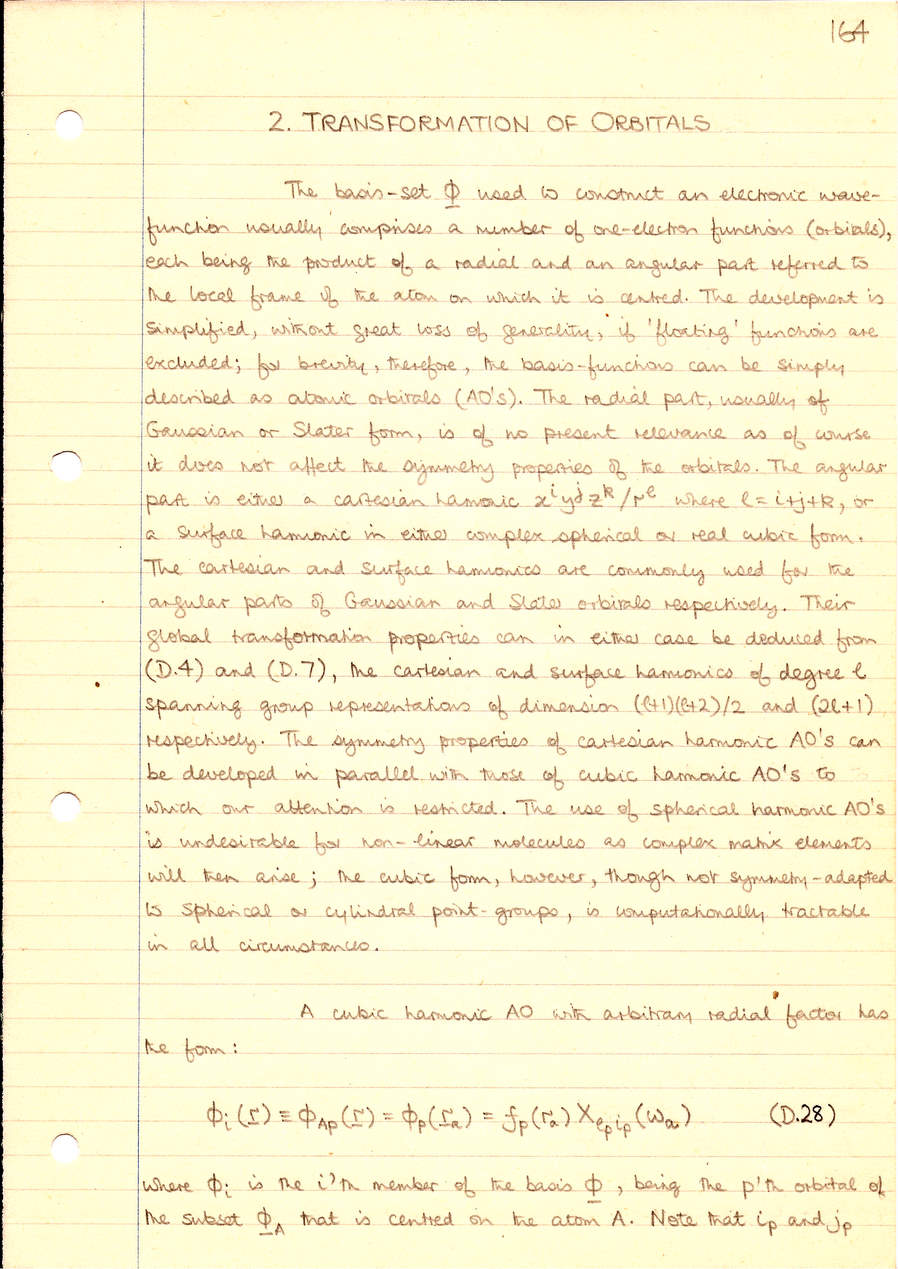 164
2. TRANSFORMATION OF ORBITALS
The basis-set Φ used to construct an electronic wave-
function usually comprises a number of one-electron functions (orbitals),
each being the product of a radial and an angular part referred to
the local frame of the atom on which it is centred. The development is
simplified, without great loss of generality, if 'floating' functions are
excluded; for brevity, therefore, the basis-functions can be simply
described as atomic orbitals (AO's). The radial part, usually of
Gaussian or Slater form, is of no present relevance as of course
it does not affect the symmetry properties of the orbitals. The angular
part is either a cartesian harmonic xⁱyʲzᵏ/rˡ where l = i+j+k, or
a surface harmonic in either complex spherical or real cubic form.
The cartesian and surface harmonics are commonly used for the
angular parts of Gaussian and Slater orbitals respectively. Their
global transformation properties can in either case be deduced from
(D.4) and (D.7), the cartesian and surface harmonics of degree l
spanning group representations of dimension (l+1)(l+2)/2 and (2l+1)
respectively. The symmetry properties of cartesian harmonic AO's can
be developed in parallel with those of cubic harmonic AO's to
which our attention is restricted. The use of spherical harmonic AO's
is undesirable for non-linear molecules as complex matrix elements
will then arise; the cubic form, however, though not symmetry-adapted
to spherical or cylindral point-groups, is computationally tractable
in all circumstances.
A cubic harmonic AO with arbitrary radial factor has
the form:
ϕᵢ(r) ≡ ϕ_Ap(r) = ϕ_p(r_a) = f_p(r_a) X_{l_p i_p}(ω_a) (D.28)
where ϕᵢ is the i'th member of the basis Φ, being the p'th orbital of
the subset Φ_A that is centred on the atom A. Note that i_p and j_p